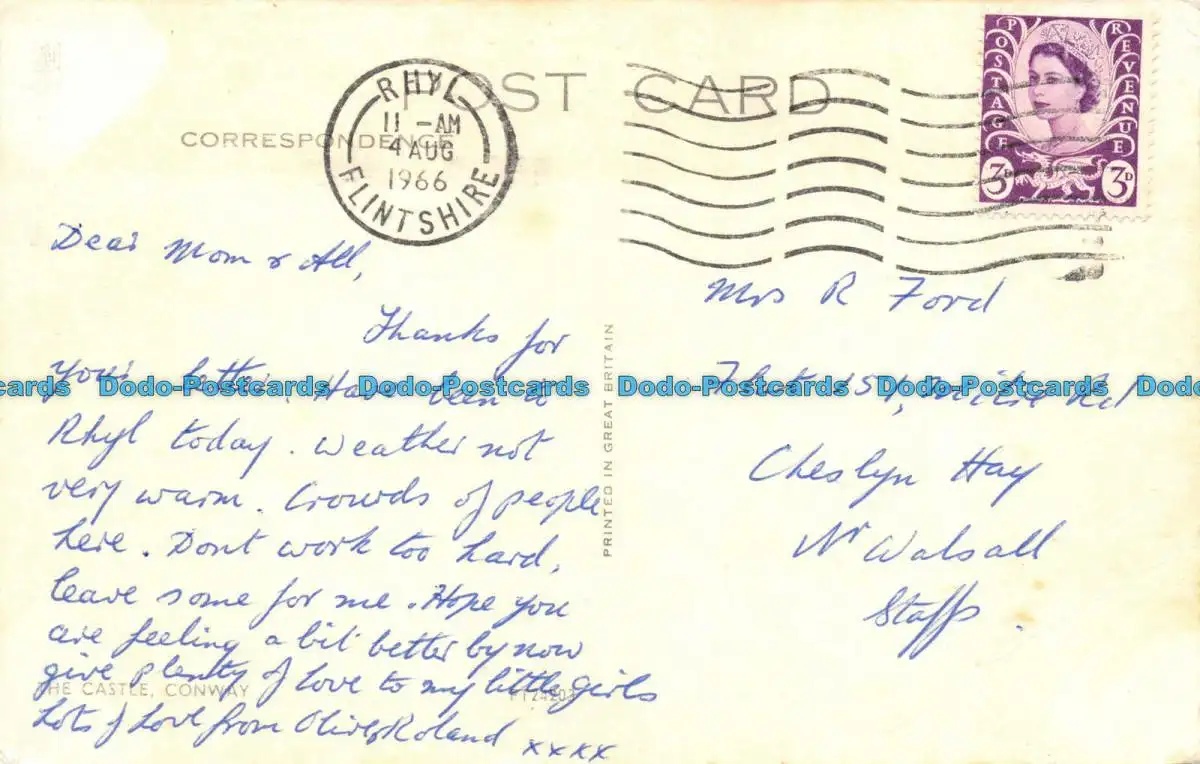 POST CARD
CORRESPONDENCE
RHYL
11 -AM
4 AUG
1966
FLINTSHIRE
POSTAGE REVENUE
3D 3D
Dear Mom & All,
Thanks for
your letter. Have been to
Rhyl today. Weather not
very warm. Crowds of people
here. Dont work too hard,
leave some for me. Hope you
are feeling a bit better by now
give plenty of love to my little girls
Lots of Love from Olive & Roland xxxx
THE CASTLE, CONWAY
PRINTED IN GREAT BRITAIN
Mrs R Ford
Rd
Cheslyn Hay
Nr Walsall
Staffs.
Dodo-Postcards Dodo-Postcards Dodo-Postcards Dodo-Postcards Dodo-Postcards